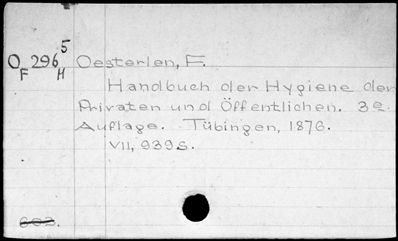 O 296 5 Oesterlen, F.
F H
Handbuch der Hygiene der
Privaten und Öffentlichen. 3e
Auflage. Tübingen, 1876.
VII, 939s.
602.